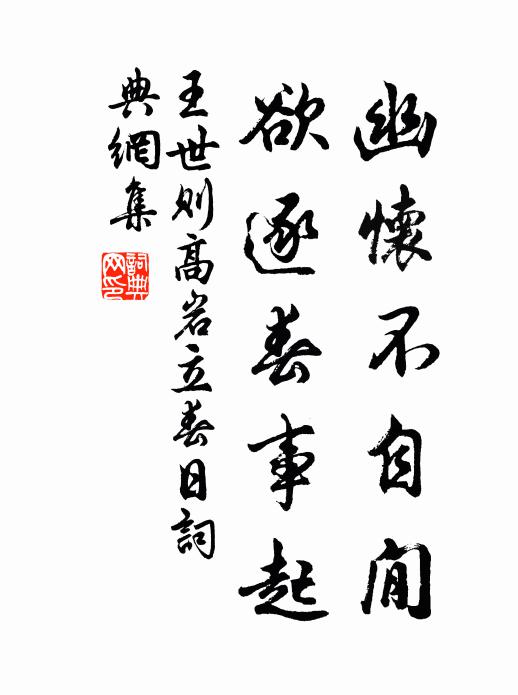 幽懷不自閒
欲逐春事起
王世則高岩立春日詞
典網集
詞典網印